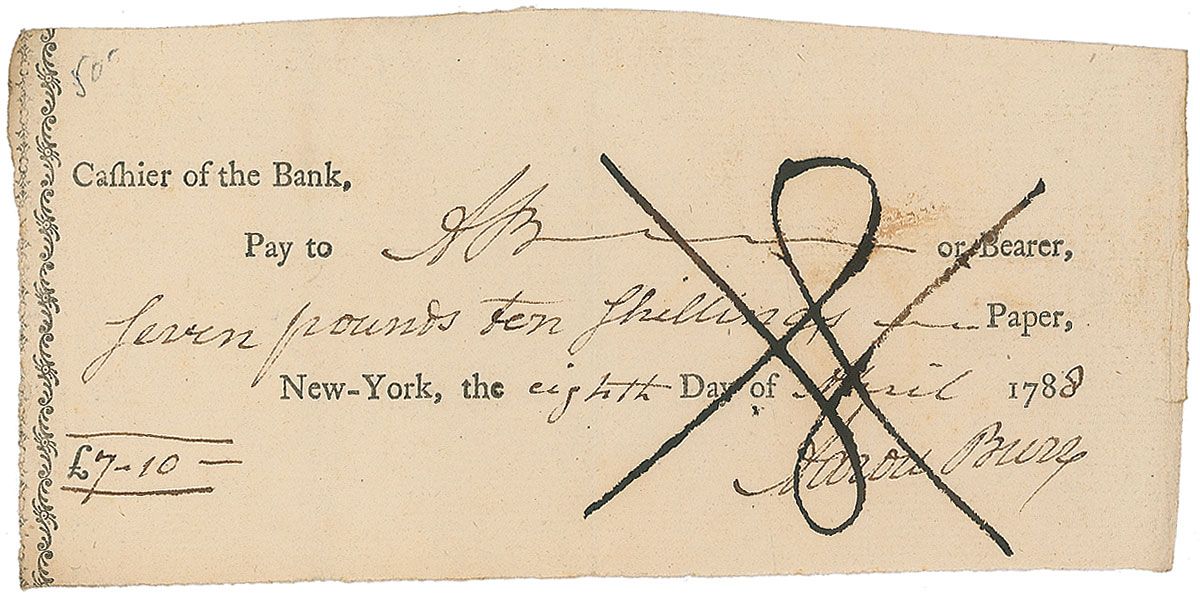 500
Caſhier of the Bank,
Pay to AB or Bearer,
Seven pounds Ten Shillings Paper,
New-York, the eighth Day of April 1788
£7-10-
Aaron Burr